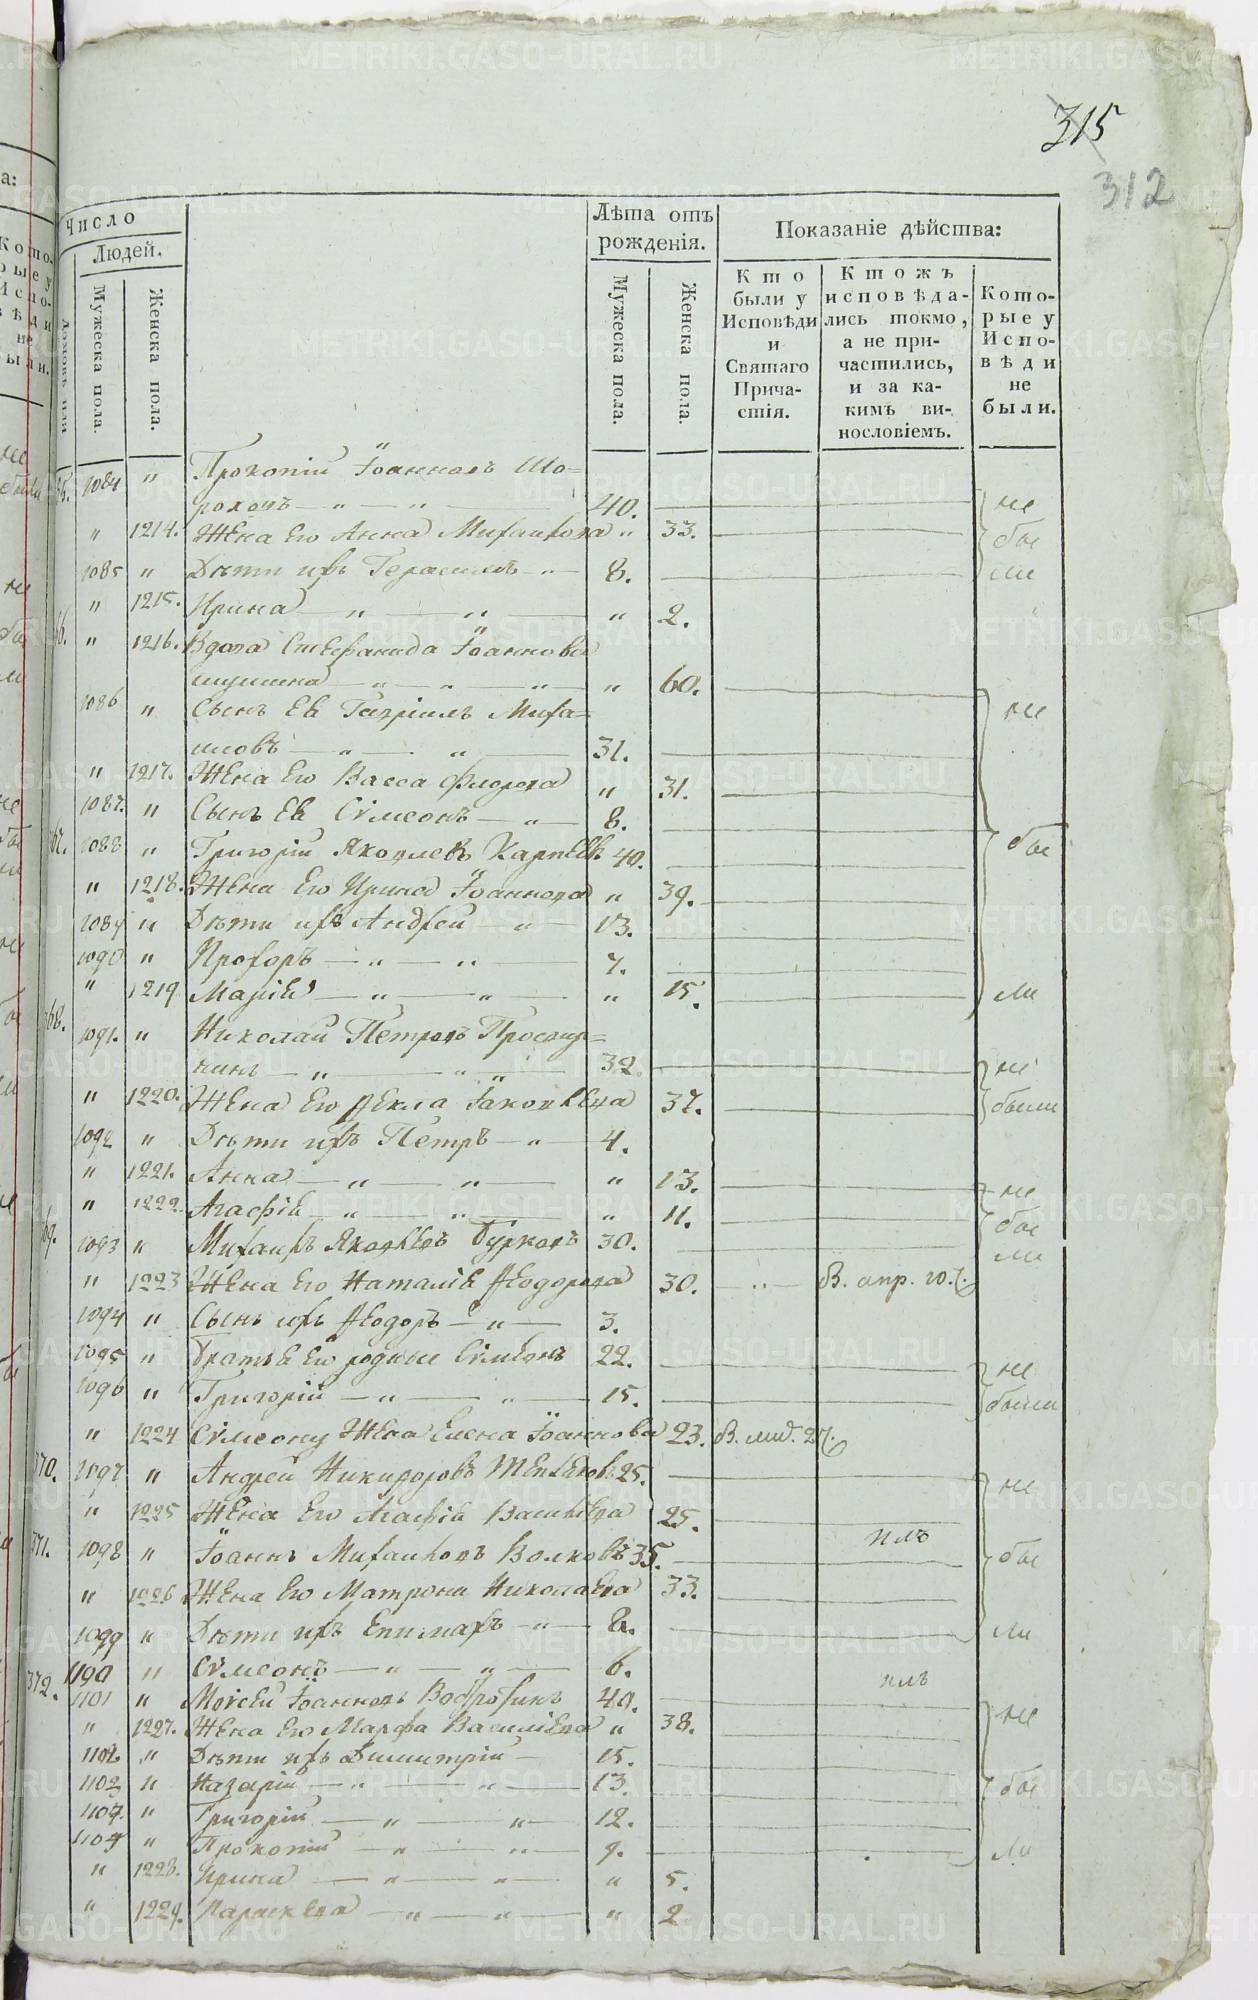 315
312
Число
Людей.
Мужеска пола.
Женска пола.
Лѣта отъ рожденія.
Мужеска пола.
Женска пола.
Показаніе дѣйства:
Кто были у Исповѣди и Святаго Причастія.
Ктожъ исповѣдались токмо, а не причастились, и за какимъ винословіемъ.
Которые у Исповѣди не были.
1084 " Прокопій Іоанновъ Шо-
роховъ — " — " — 40. не
" 1214. Жена Его Анна Михаилова " 33. бы
1085 " Дѣти ихъ Герасимъ — " — 8. ли
" 1215. Ирина — " — " — " 2.
" 1216. Вдова Стефанида Іоаннова
— " — " — " — " 60.
1086 " Сынъ Ея Гавріилъ Миха-
иловъ — " — " — 31. не
" 1217. Жена Его Васса Флорова " 31.
1087. " Сынъ Ея Сѵмеонъ — " — 8.
1088 " Григорій Яковлевъ Карпѣев. 40. бы
" 1218. Жена Его Ирина Іоаннова " 39.
1089 " Дѣти ихъ Андрей — " — 13.
1090 " Прохоръ — " — " — 7.
" 1219 Марія — " — " — " 15. ли
368.
1091. " Николай Петровъ Просвир-
нинъ — " — " " 32. не
" 1220. Жена Его Ѳекла Іаковлева 37. были
1092 " Дѣти ихъ Петръ — " — 4.
" 1221. Анна — " — " — " 13. не
" 1222. Агафія — " — " — " 11. бы
1093 " Михаилъ Яковлевъ Бурковъ 30. ли
" 1223 Жена Его Наталія Ѳеодорова 30. " В. апр. 10.
1094 " Сынъ ихъ Ѳеодоръ — " — 3.
1095 " Братья Его родные Сѵмеонъ 22. не
1096 " Григорій — " — " — 15. были
" 1224 Сѵмеону Жена Елена Іоаннова 23. В.
370. 1097 " Андрей Никифоровъ 25. не
" 1225 Жена Его Агафія Васильева 25.
371. 1098 " Іоаннъ Михаиловъ Волковъ 35. бы
" 1226 Жена Его Матрона Николаева 33.
1099 " Дѣти ихъ Епимахъ — " — 8. ли
1100 " Сѵмеонъ — " — " — 6.
372. 1101 " Моѵсей Іоанновъ 40. не
" 1227. Жена Его Марфа Василіева " 38.
1102. " Дѣти ихъ Димитрій — 15.
1103 " Назарій — " — " — 13. бы
1104. " Григорій — " — " — 12.
" Прокопій — " — " — 9. ли
" 1228. Ирина — " — " — " 5.
" 1229. Параскева — " — " — " 2
METRIKI.GASO-URAL.RU